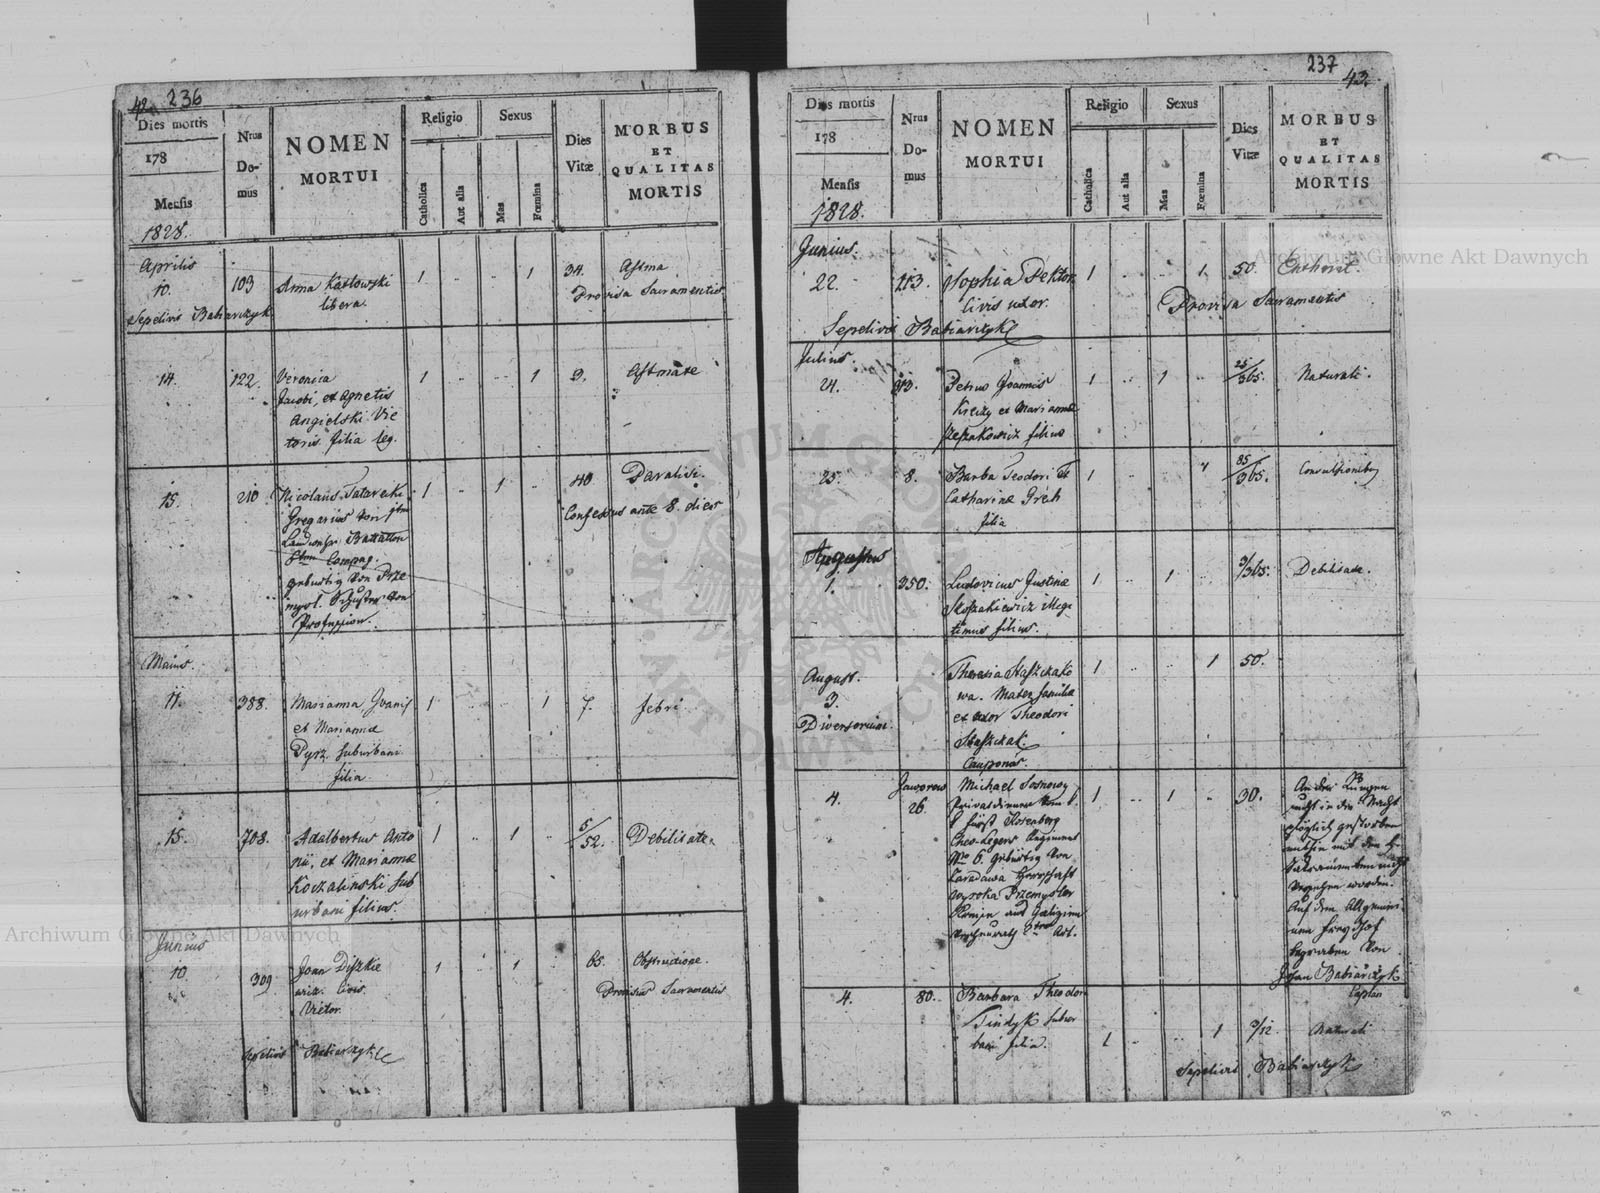 42. 236
Dies mortis
178
Mensis
1828.
Nrus
Do-
mus
NOMEN
MORTUI
Religio
Catholica
Aut alia
Sexus
Mas
Fœmina
Dies
Vitæ
MORBUS
ET
QUALITAS
MORTIS
Aprilis
10.
103
Anna Kozlowski
libera.
1
1
34.
Astma
Provisa Sacramentis
Sepelivit Babiarczyk
14.
122.
Veronica
Jacobi, et Agnetis
Angielski Vie
toris filia leg.
1
1
9.
Astmate
15.
210
Nicolaus Tatarski
Gregarius von
Landwehr Battallon
Compag.
gebürtig von Prze
mysl. Schuster von
Profession.
1
1
40
Paralisi.
Confessus ante 8. dies
Maius.
11.
388.
Marianna Joanis
et Mariannæ
Pyrz suburbani
filia
1
1
7.
febri
15.
708.
Adalbertus Anto
nii, et Mariannæ
Koczalinski sub
urbani filius.
1
1
5/52.
Debilitate.
Junius
10
309
Joan Diszkie
wicz. Civis
Vietor.
1
1
65.
Obstructione.
Provisus Sacramentis
Sepelivit Babiarczyk
237
43.
Dies mortis
178
Mensis
1828.
Nrus
Do-
mus
NOMEN
MORTUI
Religio
Catholica
Aut alia
Sexus
Mas
Fœmina
Dies
Vitæ
MORBUS
ET
QUALITAS
MORTIS
Junius.
22.
213.
Sophia Fektor
Civis uxor.
1
1
50.
Provisa Sacramentis
Sepelivit Babiarczyk
Julius.
24.
Petrus Joannis
et Mariannæ
filius
1
1
25/365.
Naturali.
25.
8.
Barba Teodori et
Catharinæ Greh
filia
1
1
25/365.
Convulsionibus
Augustus
1.
350.
Ludovicus Justinæ
illegi
timus filius.
1
1
9/365.
Debilitate.
August.
3.
Diversorium.
Theresia Staszczako
wa. Mater familiæ
et uxor Theodori
Staszczak.
Cauponas.
1
1
50.
4.
Jaworow
26.
Michael Sosnowy
Privatdiener vom
Fürst Rosenberg
Chev-Legers Regiment
Nro 6. gebürtig von
Zaradawa Herrschaft
Wysoka Przemysler
Kreises aus Galizien
1
1
30.
An den Lungen
sucht in die Nacht
plötzlich gestorben
mithin mit den H.
Sakramenten nicht
versehen worden.
Auf dem Allgemei
nen Freydhof
begraben von
Johan Babiarczyk
Caplan
4.
80.
Barbara Theodori
Tindyk subur
bani filia.
1
1
9/12.
Naturali
Sepelivit Babiarczyk
Archiwum Główne Akt Dawnych
Archiwum Główne Akt Dawnych
ARCHIWUM GŁÓWNE AKT DAWNYCH